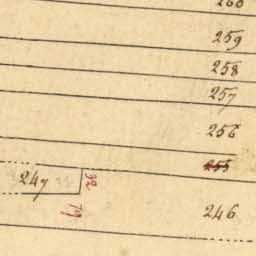 259
258
257
256
255
247
32
79
246